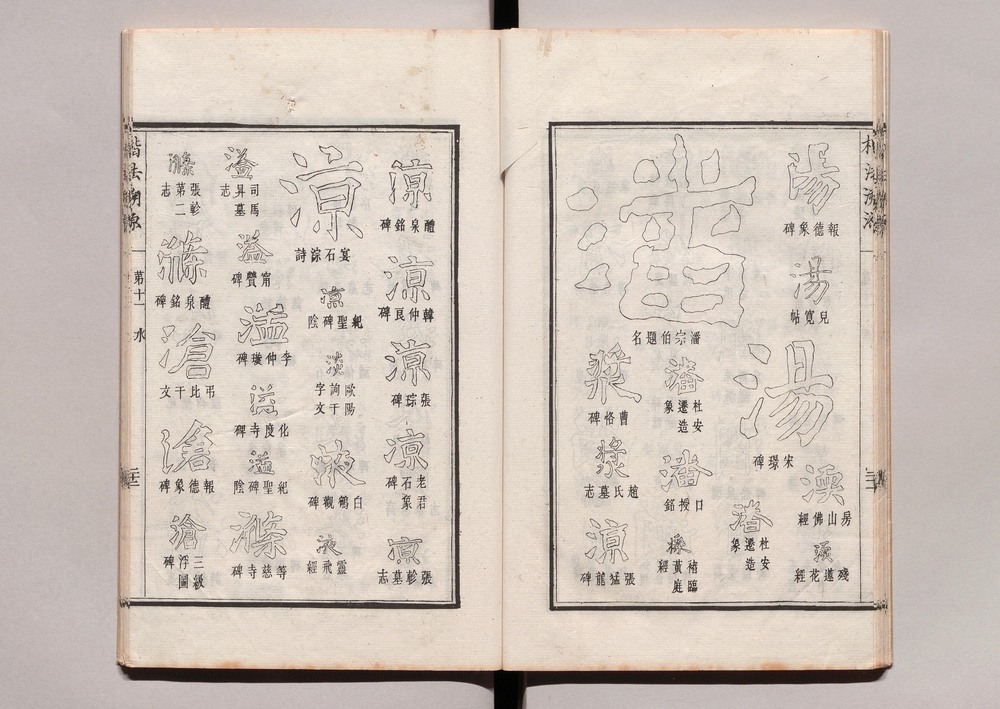 湯
報德象碑
湯
兒寬帖
房山佛經
殘蓮花經
湯
宋璟碑
潘
杜安遷造象
潘
潘宗伯題名
潘
杜安遷造象
潘
口授銘
漿
褚臨黃庭經
漿
曹恪碑
漿
趙氏墓志
涼
張猛龍碑
涼
醴泉銘碑
涼
韓仲良碑
涼
張琮碑
涼
老君石象碑
涼
張軫墓志
涼
宴石淙詩
涼
紀聖碑陰
淡
歐陽詢千字文
液
白鶴觀碑
液
靈飛經
溢
司馬昇墓志
溢
甯贙碑
溢
李仲璇碑
溢
化度寺碑
溢
紀聖碑陰
滌
等慈寺碑
滌
張軫第二志
滌
醴泉銘碑
滄
弔比干文
滄
報德象碑
滄
三級浮圖碑
楷法溯源
第十一
水